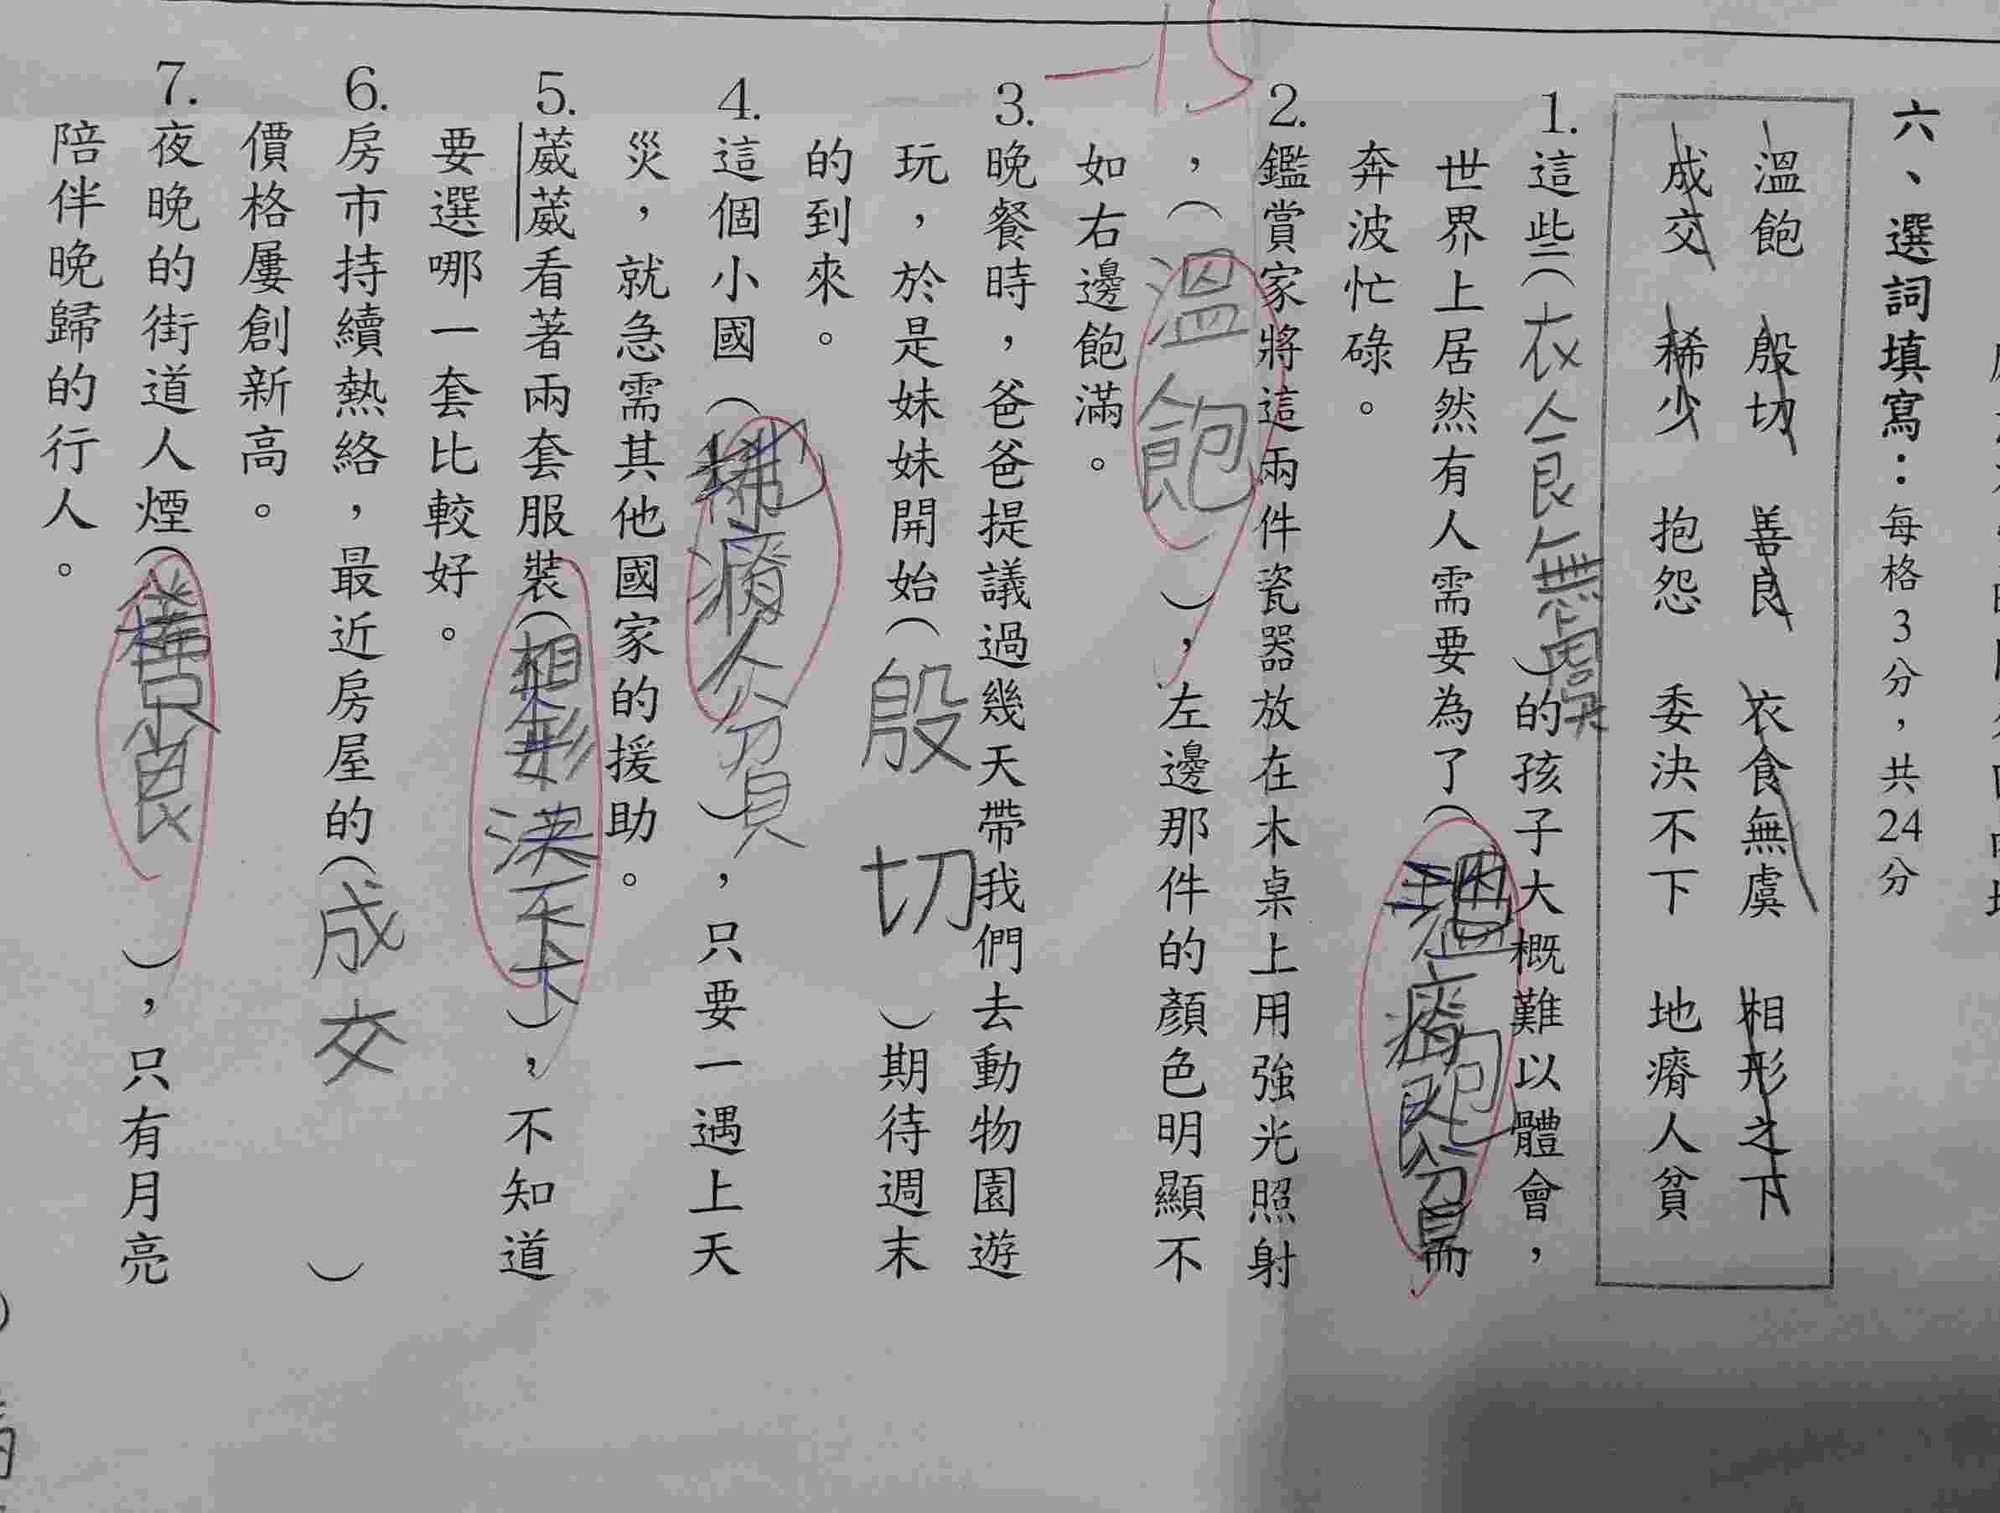 六、選詞填寫：每格3分，共24分
溫飽 殷切 善良 衣食無虞 相形之下
成交 稀少 抱怨 委決不下 地瘠人貧
1.這些（衣食無虞）的孩子大概難以體會，
世界上居然有人需要為了（
奔波忙碌。
2.鑑賞家將這兩件瓷器放在木桌上用強光照射
，（溫飽），左邊那件的顏色明顯不
如右邊飽滿。
3.晚餐時，爸爸提議過幾天帶我們去動物園遊
玩，於是妹妹開始（殷切）期待週末
的到來。
4.這個小國（瘠人貧），只要一遇上天
災，就急需其他國家的援助。
5.葳葳看著兩套服裝（），不知道
要選哪一套比較好。
6.房市持續熱絡，最近房屋的（成交）
價格屢創新高。
7.夜晚的街道人煙（），只有月亮
陪伴晚歸的行人。
-15